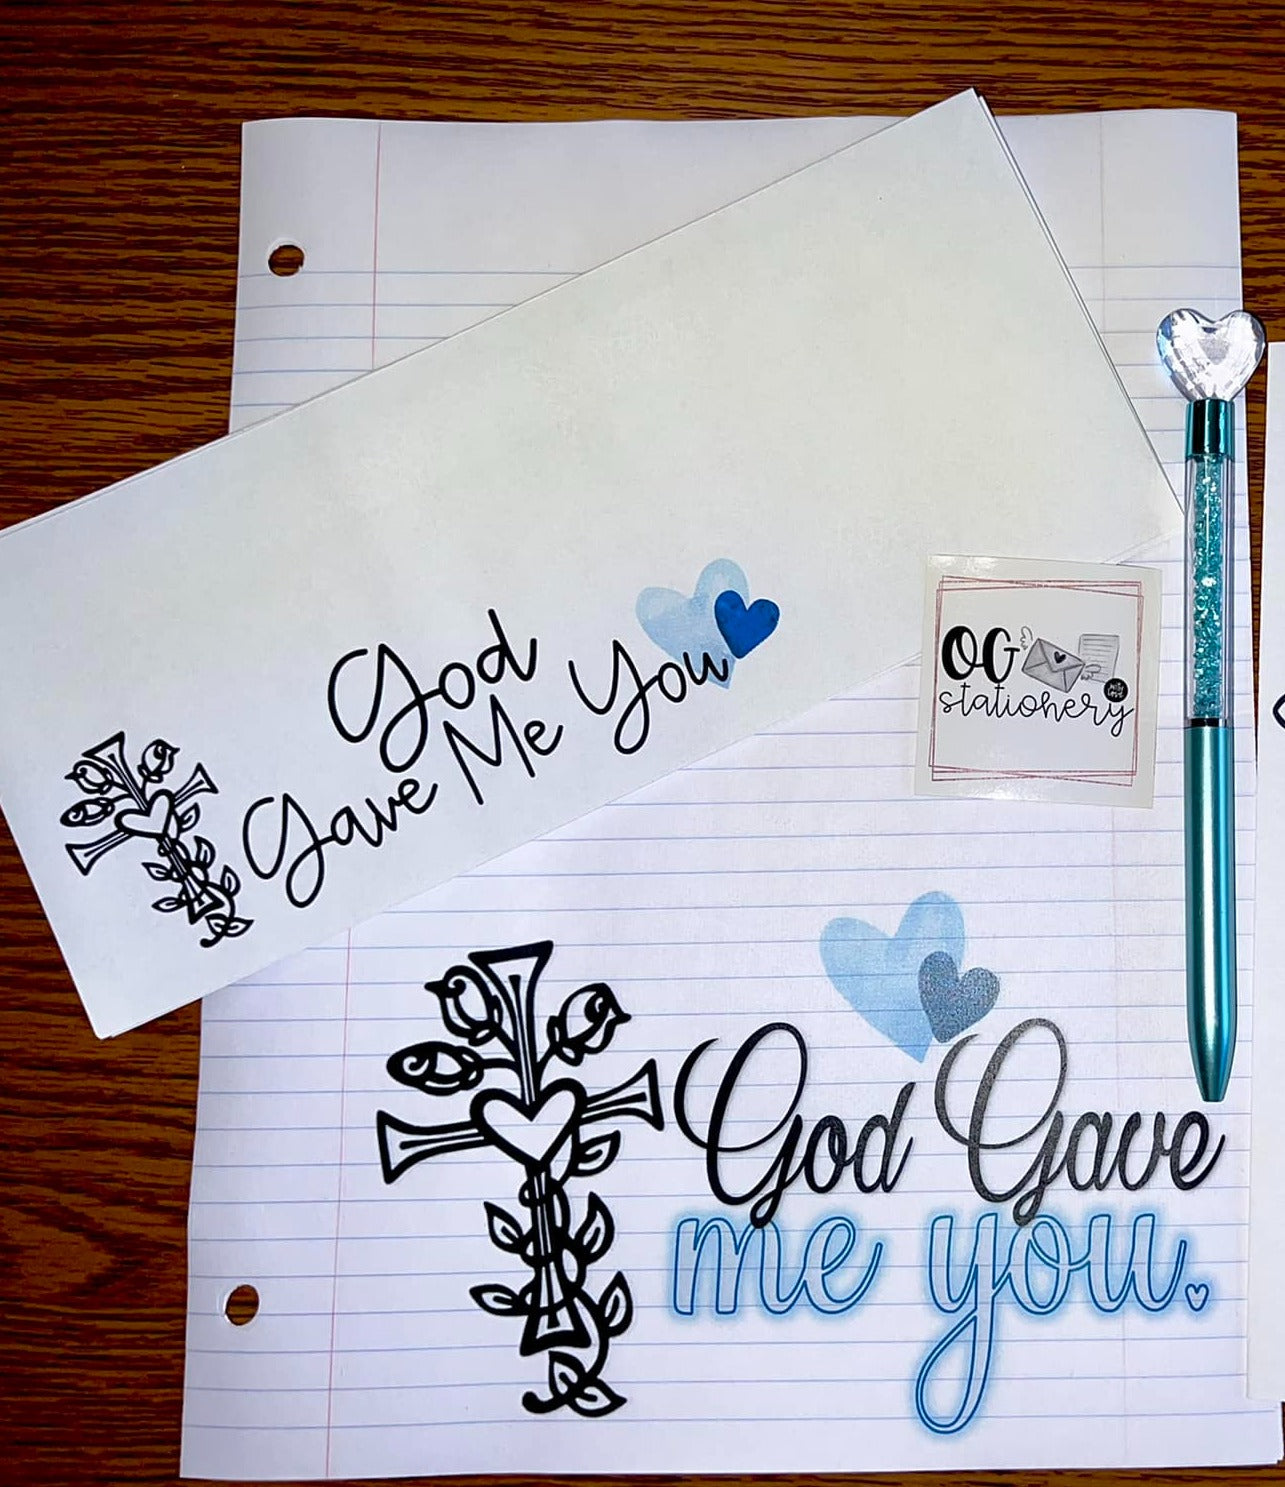 God
Gave Me You
OG
stationery
God Gave
me you.